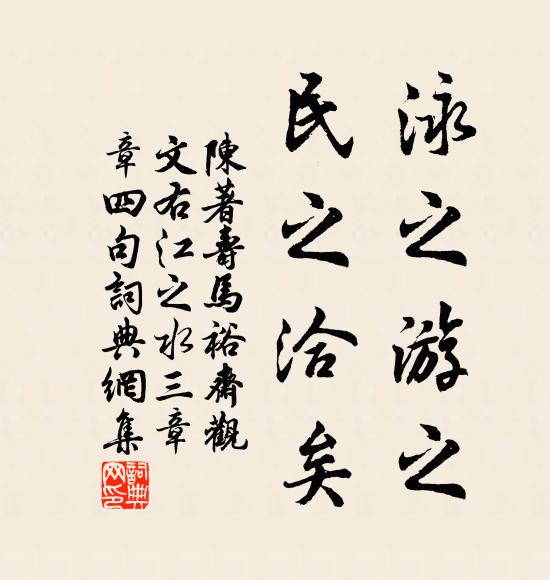 泳之游之
民之洽矣
陳著壽馬裕齋觀
文右江之水三章
章四句詞典網集
詞典网印